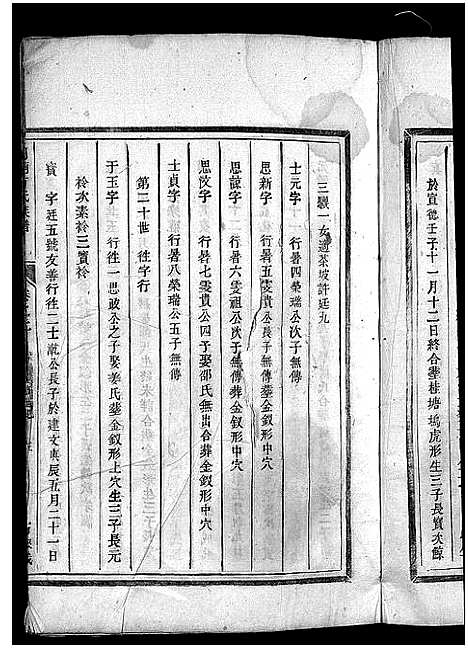 於宣德壬子十一月十二日終合塟桂塘塢虎形生三子長寶次餘
三驥一女適茶坡許廷九
士元字 行暑四榮瑞公次子無傳
思新字 行暑五雯貴公長子無傳
思諱字 行暑六雯祖公次子無傳塟金釵形中穴
思汶字 行暑七雯貴公四子娶邵氏無出合塟金釵形中穴
士貞字 行暑八榮瑞公五子無傳
第二十世 往字行
于玉字 行往一思政公之子娶姜氏塟金釵形上穴生三子長元
衿次素衿三寶衿
寳 字廷五號友善行往二士 公長子於建文庚辰五月二十一日